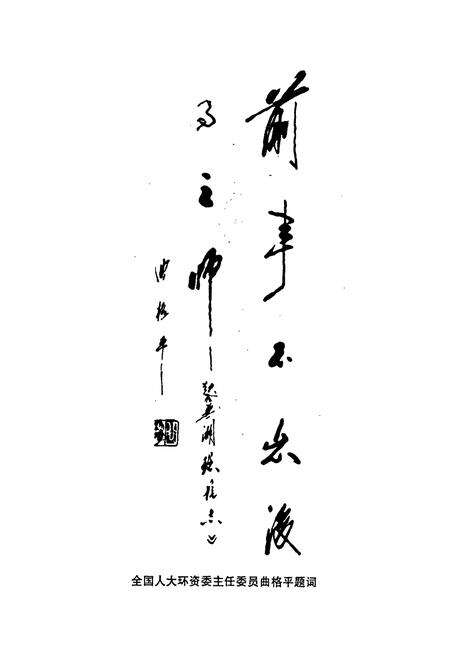 前事不忘後
事之师
题《芜湖环保志》
曲格平
全国人大环资委主任委员曲格平题词